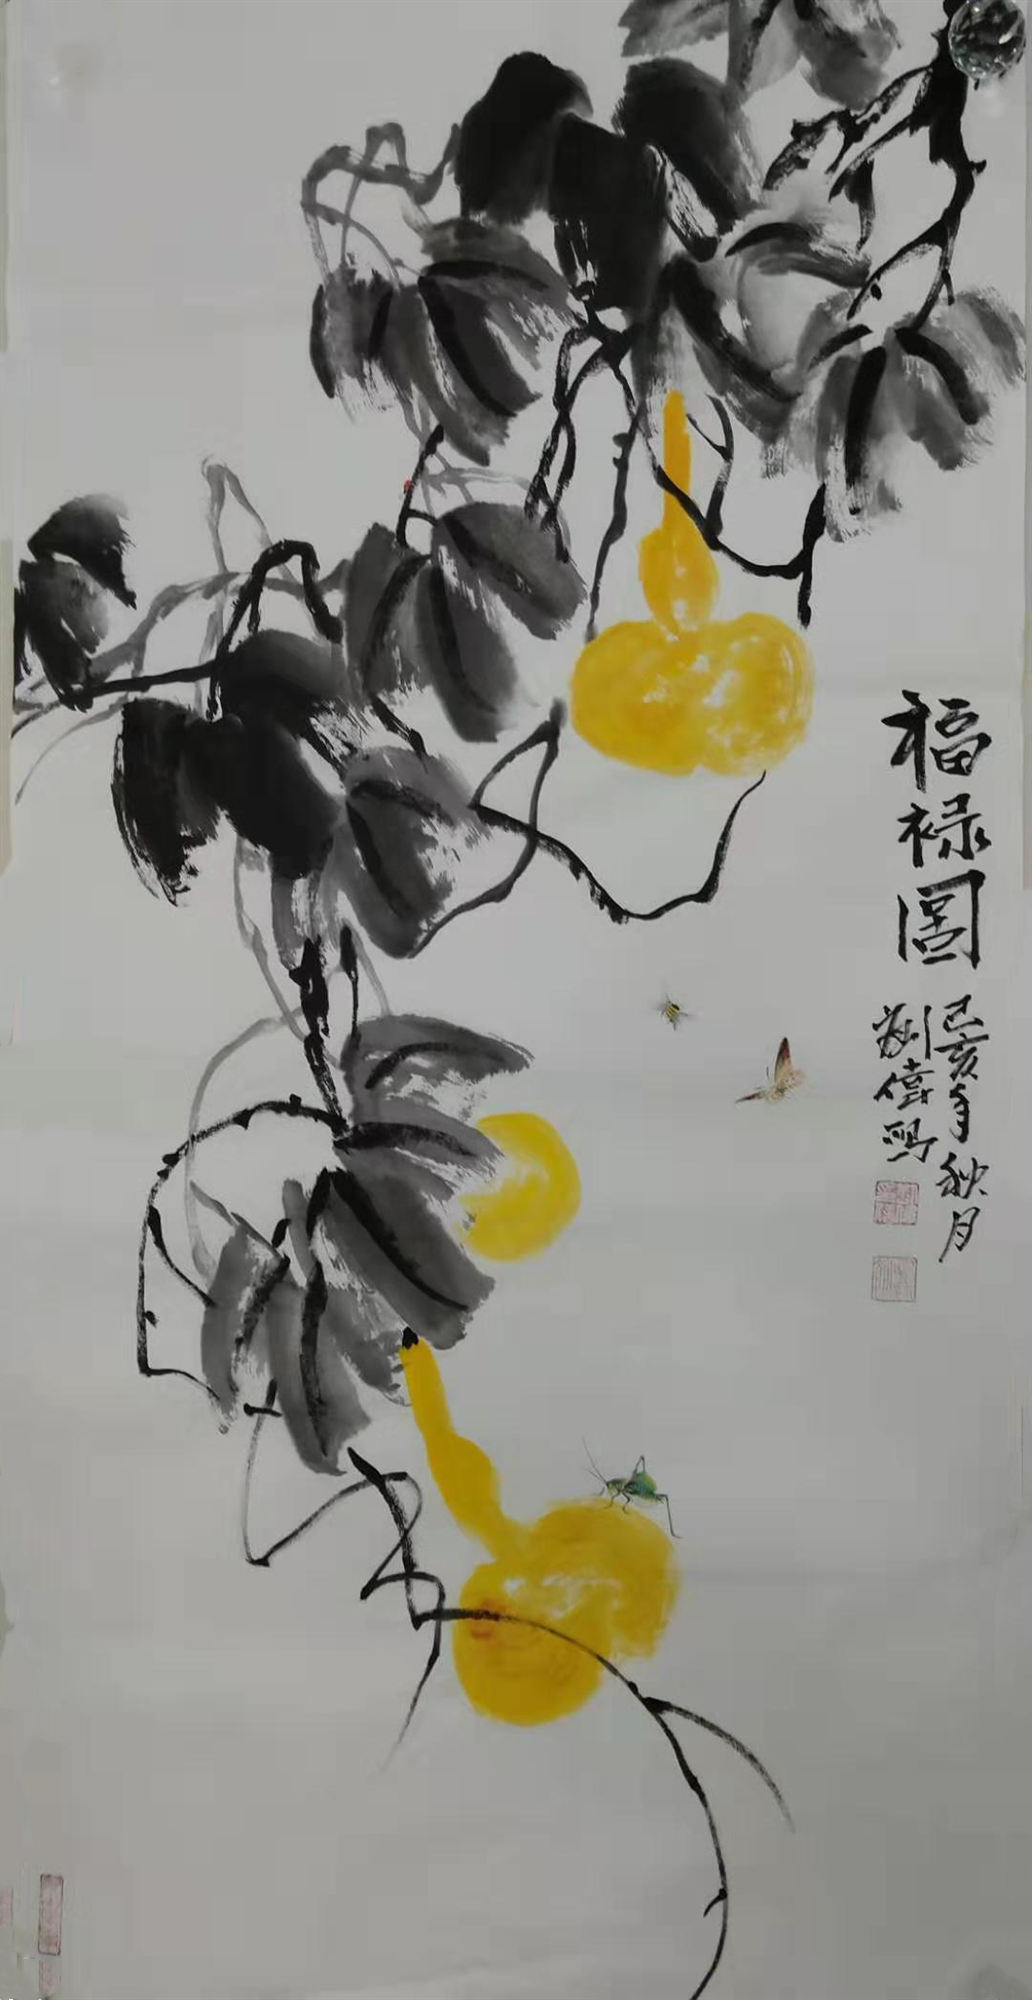 福禄圖
己亥年秋月
劉偉寫